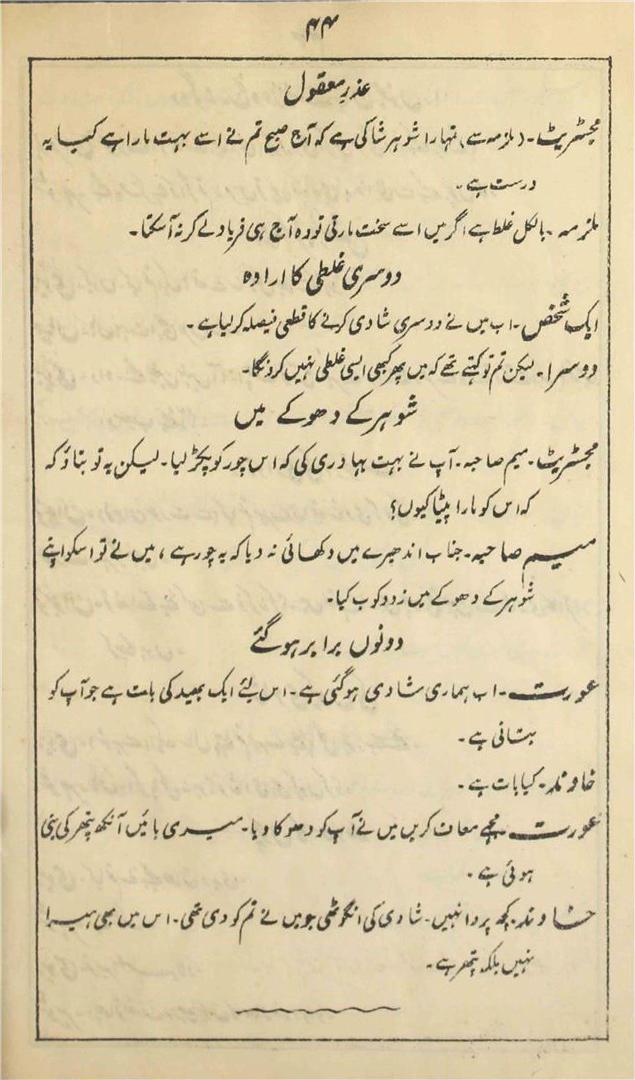 ۴۴
عذرِ معقول
مجسٹریٹ۔ (ملزمہ سے) تمہارا شوہر شاکی ہے کہ آج صبح تم نے اسے بہت مارا ہے کیا یہ
درست ہے۔
ملزمہ۔ بالکل غلط ہے اگر میں اسے سخت مارتی تو وہ آج ہی فریاد لے کر نہ آ سکتا۔
دوسری غلطی کا ارادہ
ایک شخص۔ اب میں نے دوسری شادی کرنے کا قطعی فیصلہ کر لیا ہے۔
دوسرا۔ لیکن تم تو کہتے تھے کہ میں پھر کبھی ایسی غلطی نہیں کرونگا۔
شوہر کے دھوکے میں
مجسٹریٹ۔ میم صاحبہ۔ آپ نے بہت بہادری کی کہ اس چور کو پکڑ لیا۔ لیکن یہ تو بتاؤ کہ
کہ اس کو مارا پیٹا کیوں؟
میم صاحبہ۔ جناب اندھیرے میں دکھائی نہ دیا کہ یہ چور ہے، میں نے تو اسکو اپنے
شوہر کے دھوکے میں زدوکوب کیا۔
دونوں برابر ہو گئے
عورت۔ اب ہماری شادی ہو گئی ہے۔ اس لئے ایک بھید کی بات ہے جو آپ کو
بتانی ہے۔
خاوند۔ کیا بات ہے۔
عورت۔ مجھے معاف کریں میں نے آپ کو دھوکا دیا۔ میری بائیں آنکھ پتھر کی بنی
ہوئی ہے۔
خاوند۔ کچھ پروا نہیں۔ شادی کی انگوٹھی جو میں نے تم کو دی تھی۔ اس میں بھی ہیرا
نہیں بلکہ پتھر ہے۔